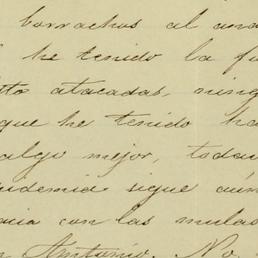 borrachos al an
he tenido la f
to atacadas, ning
que he tenido ha
algo mejor, toda
idemia sigue aún
acia con las mulas
n Antonio. No